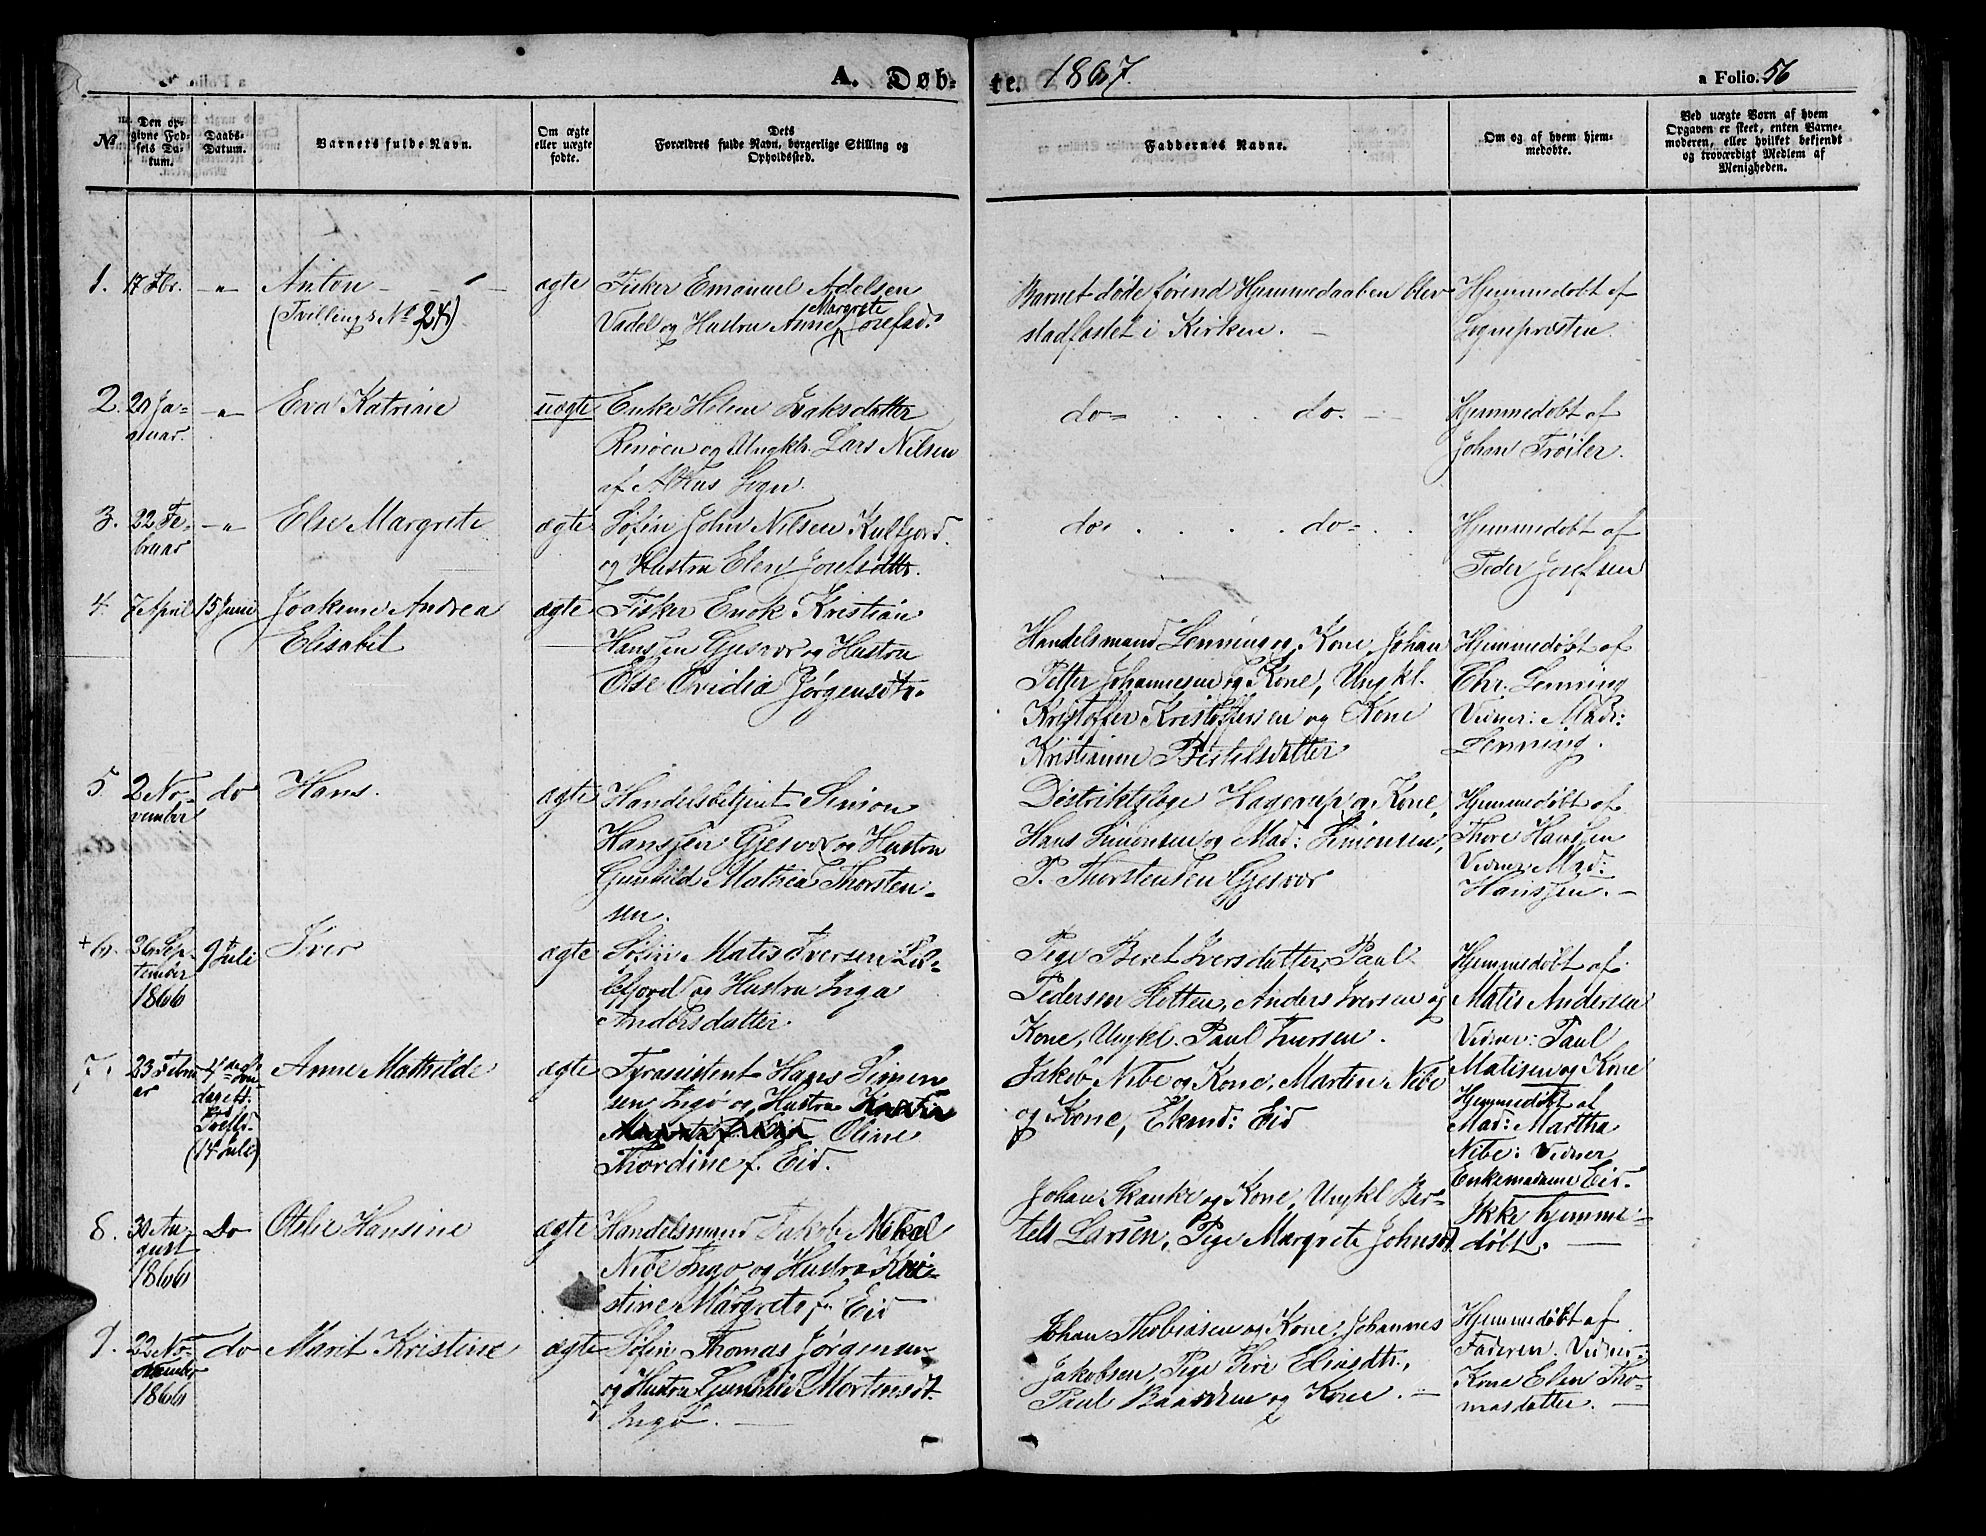 A. Døb-
te. 1867.
a Folio. 56
No
Den op-
givne Fød-
sels Da-
tum.
Daabs-
Datum.
Barnets fulde Navn.
Om ægte
eller uægte
fødte.
Dets
Forældres fulde Navn, borgerlige Stilling og
Opholdssted.
Faddernes Navne.
Om og af hvem hjem-
medøbte.
Ved uægte Børn af hvem
Opgaven er skeet, enten Barne-
moderen, eller hvilket bekjendt
og troværdigt Medlem af
Menigheden.
1. 17 Fbr. - " - Anton - (Tvilling: No 24)
ægte
Fisker Emanuel Adolsen
Margrete
og Hustru Anne Josefsd.
Barnet døde førend Hjemmedaaben blev
stadfæstet i Kirken. -
Hjemmedøbt af
Sognepresten.
2. 20 Ja-
nuar. - " - Eva Katrine
uægte
Enke Helene Isaksdatter
Renøen og Ungkl. Lars Nilsen
af Sogn.
do - . . . do. -
Hjemmedøbt af
Johan Trøiler.
3. 22 Fe-
bruar - " - Else Margrete
ægte
Søfin John Nilsen Kulfjord
og Hustru Elen Josefsdttr.
do. . . . . do - . .
Hjemmedøbt af
Peder Josefsen
4. 7 April 15 Juni Joakime Andrea
Elisabet
ægte
Fisker Enok Kristian
Hanssen Gjesvær og Hustru
Else Ovidia Jørgensdtr.
Handelsmand Lenning og Kone, Johan
Petter Johannesen og Kone, Ungkl.
Kristoffer Kristoffersen og Kone
Kristianne Bertelsdatter
Hjemmedøbt af
Chr. Lenning
Vidner: Mad:
Lenning.
5. 2 No-
vember do Hans.
ægte
Handelsbetjent Simon
Hanssen Gjesvær og Hustru
Gunhild Mathea Thorsten-
sen.
Distriktslæge Hagerup og Kone,
Hans Simonsen og Mad: Simonsen,
P. Thorstensen Gjesvær
Hjemmedøbt af
Thore Hanssen
Vidner Mad:
Hanssen. -
+6. Sep-
tember
1866 9 Juli Iver
ægte
Søfin Matis Iversen
fjord og Hustru Inga
Andersdatter.
Pige Beret Iversdatter, Paul
Pedersen Sletten, Anders Iversen og
Kone, Ungkl. Paul Iversen.
Hjemmedøbt af
Matis Andersen
Vidner: Paul
Matisen og Kone
7. 23 Febru
ar 4de
Søn
dag eft.
Trefl.
(14 Juli) Anne Mathilde
ægte
Fyrassistent Hans Simon
sen Ingø og Hustru
Oline
Thordine f. Eid.
Jakob Nibe og Kone, Martin Nibe
og Kone, Ekmd: Eid
Hjemmedøbt af
Mad: Martha
Nibe: Vidner
Enkemadame Eid.
8. 30 Au-
gust
1866 Do Otelie Hansine
ægte
Handelsmand Jakob Nikol
Nibe Ingø og Hustru Kri-
stine Margrete f. Eid
Johan Skanke og Kone, Ungkl Ber-
tel Larsen, Pige Margrete Johnsd.
Ikke hjemme-
døbt. -
9. 22 No-
vember
1866 do Marit Kristine
ægte
Søfin Thomas Jørgensen
og Hustru Gunhild Mortensdt.
Ingø. -
Johan Thobiasen og Kone, Johannes
Jakobsen, Pige Siri Eliasdtr.,
Paul Baardsen og Kone. -
Hjemmedøbt af
Faderen. Vidner:
Kone Elen Tho-
masdatter. -